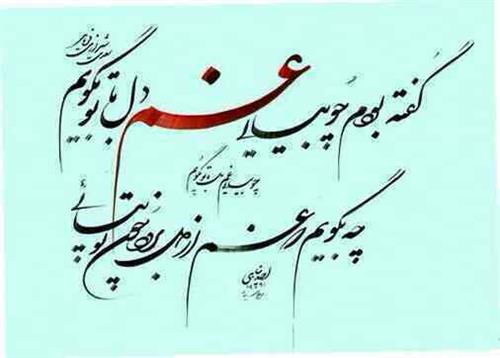 گفته بودم چو بیایی غم دل با تو بگویم
چو بیایی غم دل با تو بگویم
چه بگویم که غم از دل برود چون تو بیایی